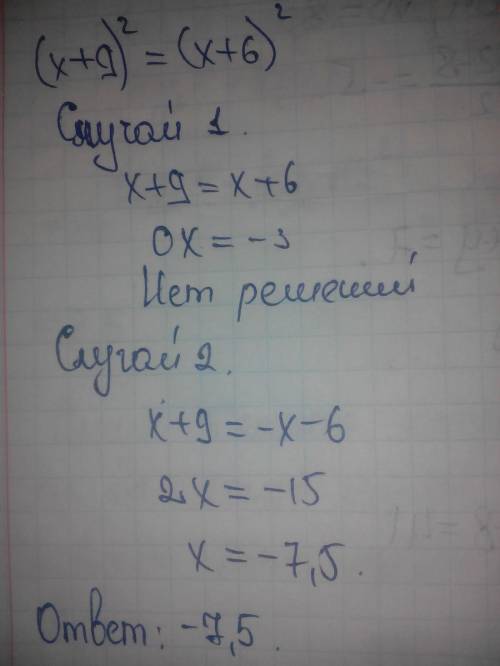 (x+9)² = (x+6)²
Случай 1.
x+9 = x+6
0x = -3
Нет решений
Случай 2.
x+9 = -x-6
2x = -15
x = -7,5.
Ответ: -7,5.